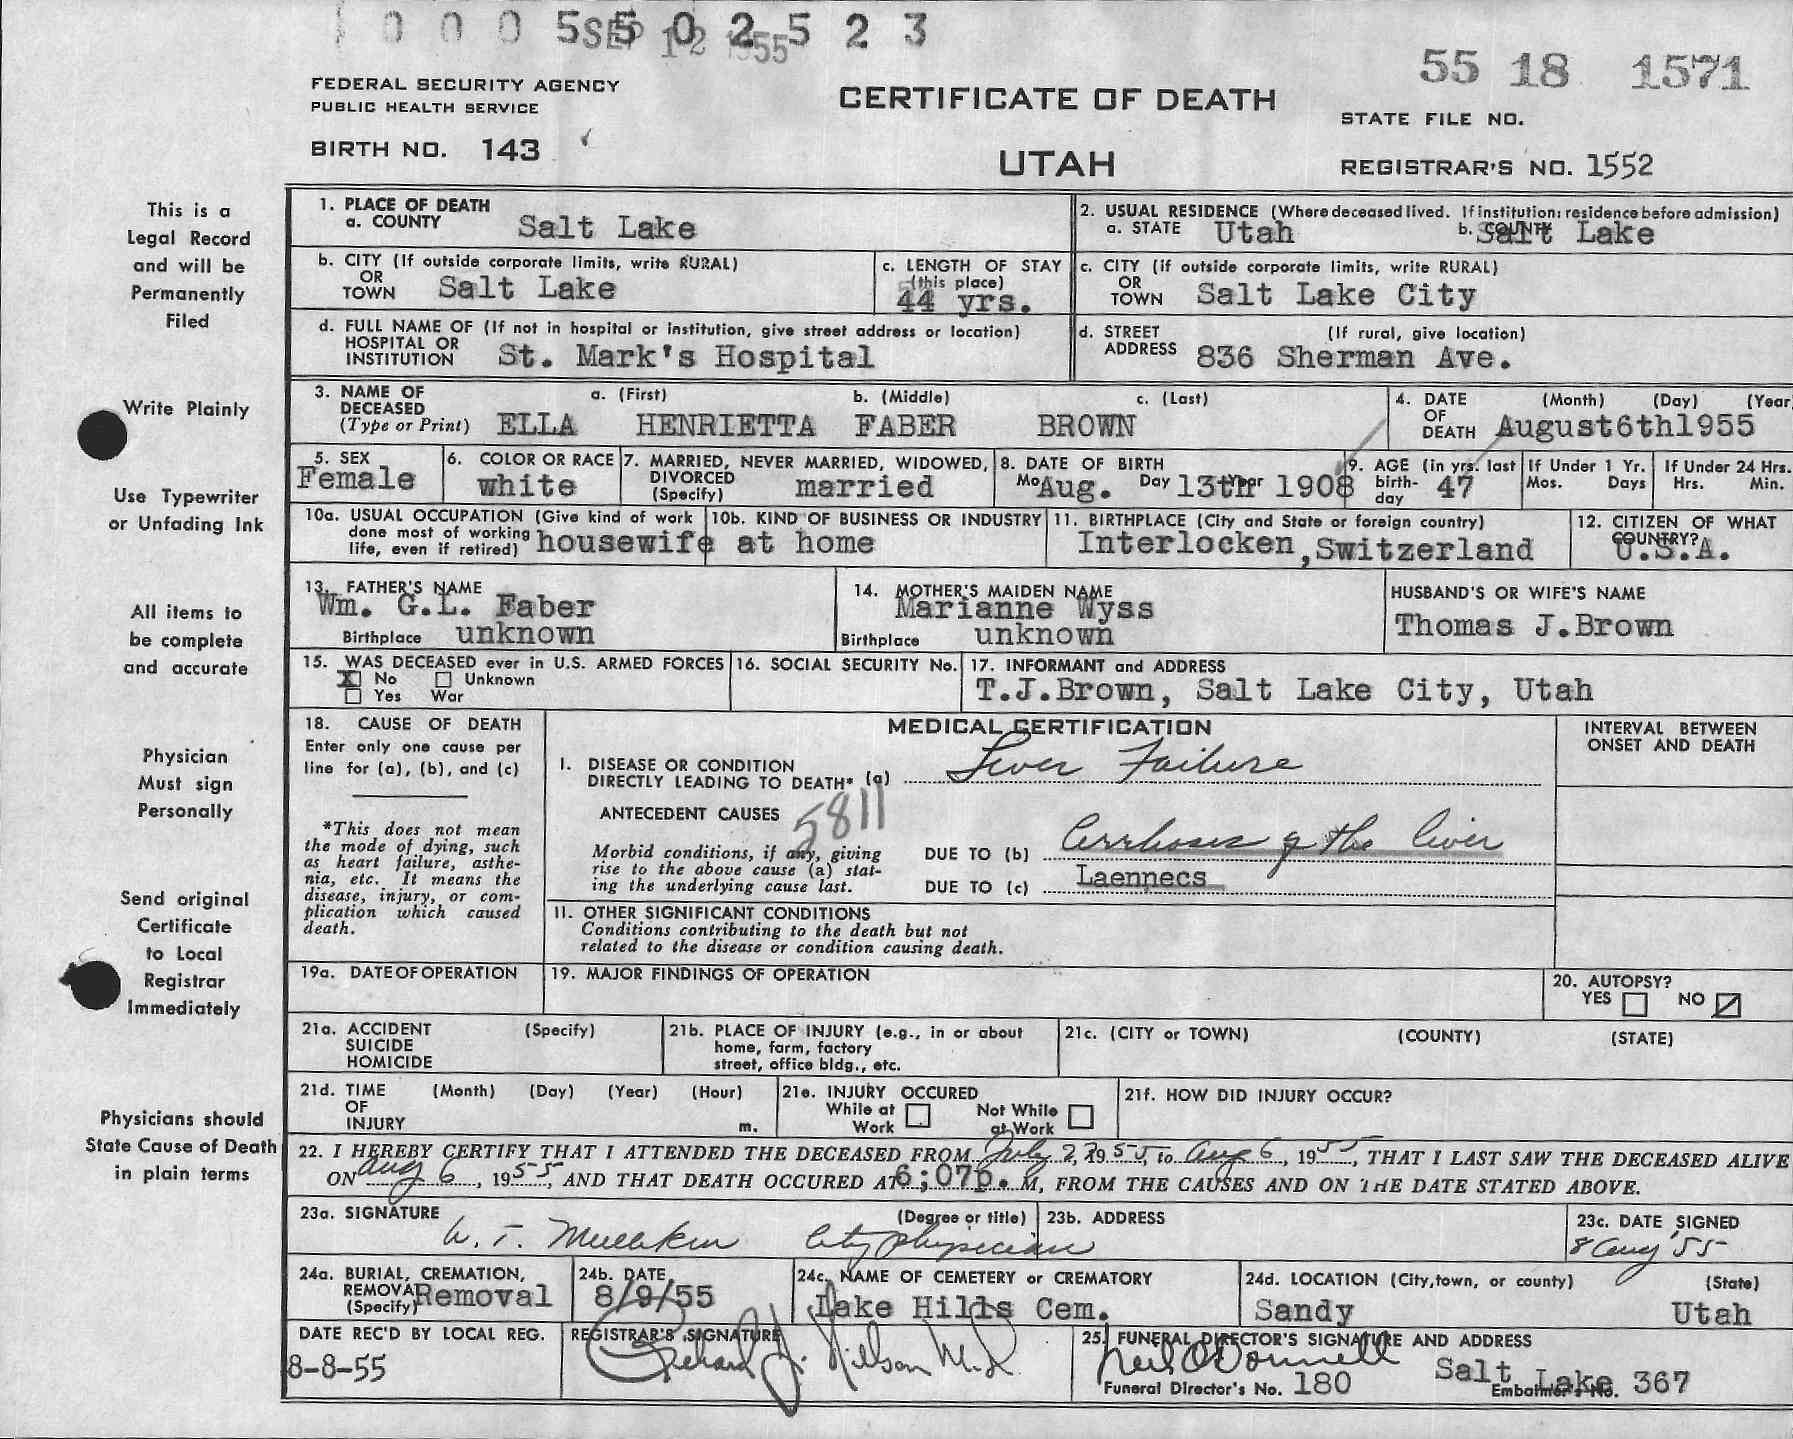 0 0 0 5 5 0 2 5 2 3
SEP 12 1955
55 18 1571
FEDERAL SECURITY AGENCY
PUBLIC HEALTH SERVICE
CERTIFICATE OF DEATH
STATE FILE NO.
BIRTH NO. 143
UTAH
REGISTRAR'S NO. 1552
This is a
Legal Record
and will be
Permanently
Filed
Write Plainly
Use Typewriter
or Unfading Ink
All items to
be complete
and accurate
Physician
Must sign
Personally
Send original
Certificate
to Local
Registrar
Immediately
Physicians should
State Cause of Death
in plain terms
1. PLACE OF DEATH
a. COUNTY Salt Lake
2. USUAL RESIDENCE (Where deceased lived. If institution: residence before admission)
a. STATE Utah b. COUNTY Salt Lake
b. CITY (If outside corporate limits, write RURAL)
OR
TOWN Salt Lake
c. LENGTH OF STAY
(this place)
44 yrs.
c. CITY (If outside corporate limits, write RURAL)
OR
TOWN Salt Lake City
d. FULL NAME OF (If not in hospital or institution, give street address or location)
HOSPITAL OR
INSTITUTION St. Mark's Hospital
d. STREET (If rural, give location)
ADDRESS 836 Sherman Ave.
3. NAME OF a. (First) b. (Middle) c. (Last)
DECEASED
(Type or Print) ELLA HENRIETTA FABER BROWN
4. DATE (Month) (Day) (Year
OF
DEATH August6th1955
5. SEX
Female
6. COLOR OR RACE
white
7. MARRIED, NEVER MARRIED, WIDOWED,
DIVORCED
(Specify) married
8. DATE OF BIRTH
Mo. Aug. Day 13th Year 1908
9. AGE (in yrs. last
birth-
day 47
If Under 1 Yr.
Mos. Days
If Under 24 Hrs.
Hrs. Min.
10a. USUAL OCCUPATION (Give kind of work
done most of working
life, even if retired) housewife
10b. KIND OF BUSINESS OR INDUSTRY
at home
11. BIRTHPLACE (City and State or foreign country)
Interlocken, Switzerland
12. CITIZEN OF WHAT
COUNTRY?
U.S.A.
13. FATHER'S NAME
Wm. G.L. Faber
Birthplace unknown
14. MOTHER'S MAIDEN NAME
Marianne Wyss
Birthplace unknown
HUSBAND'S OR WIFE'S NAME
Thomas J.Brown
15. WAS DECEASED ever in U.S. ARMED FORCES
X No Unknown
Yes War
16. SOCIAL SECURITY No.
17. INFORMANT and ADDRESS
T.J.Brown, Salt Lake City, Utah
18. CAUSE OF DEATH
Enter only one cause per
line for (a), (b), and (c)
*This does not mean
the mode of dying, such
as heart failure, asthe-
nia, etc. It means the
disease, injury, or com-
plication which caused
death.
MEDICAL CERTIFICATION
INTERVAL BETWEEN
ONSET AND DEATH
I. DISEASE OR CONDITION
DIRECTLY LEADING TO DEATH* (a) Liver Failure
ANTECEDENT CAUSES
5811
Morbid conditions, if any, giving
rise to the above cause (a) stat-
ing the underlying cause last.
DUE TO (b) Cirrhosis of the liver
DUE TO (c) Laennecs
II. OTHER SIGNIFICANT CONDITIONS
Conditions contributing to the death but not
related to the disease or condition causing death.
19a. DATE OF OPERATION
19. MAJOR FINDINGS OF OPERATION
20. AUTOPSY?
YES NO
21a. ACCIDENT (Specify)
SUICIDE
HOMICIDE
21b. PLACE OF INJURY (e.g., in or about
home, farm, factory
street, office bldg., etc.
21c. (CITY or TOWN) (COUNTY) (STATE)
21d. TIME (Month) (Day) (Year) (Hour)
OF
INJURY m.
21e. INJURY OCCURED
While at Work
Not While at Work
21f. HOW DID INJURY OCCUR?
22. I HEREBY CERTIFY THAT I ATTENDED THE DECEASED FROM July 2, 1955, to Aug 6, 1955, THAT I LAST SAW THE DECEASED ALIVE
ON Aug 6, 1955, AND THAT DEATH OCCURED AT 6:07p. M, FROM THE CAUSES AND ON THE DATE STATED ABOVE.
23a. SIGNATURE (Degree or title)
W. T. City physician
23b. ADDRESS
23c. DATE SIGNED
8 Aug '55
24a. BURIAL, CREMATION,
REMOVAL
(Specify) Removal
24b. DATE
8/9/55
24c. NAME OF CEMETERY or CREMATORY
Lake Hills Cem.
24d. LOCATION (City, town, or county) (State)
Sandy Utah
DATE REC'D BY LOCAL REG.
8-8-55
REGISTRAR'S SIGNATURE
Richard J. Nilson M.D.
25. FUNERAL DIRECTOR'S SIGNATURE AND ADDRESS
Neil O'Donnell Salt Lake
Funeral Director's No. 180 Embalmer's No. 367